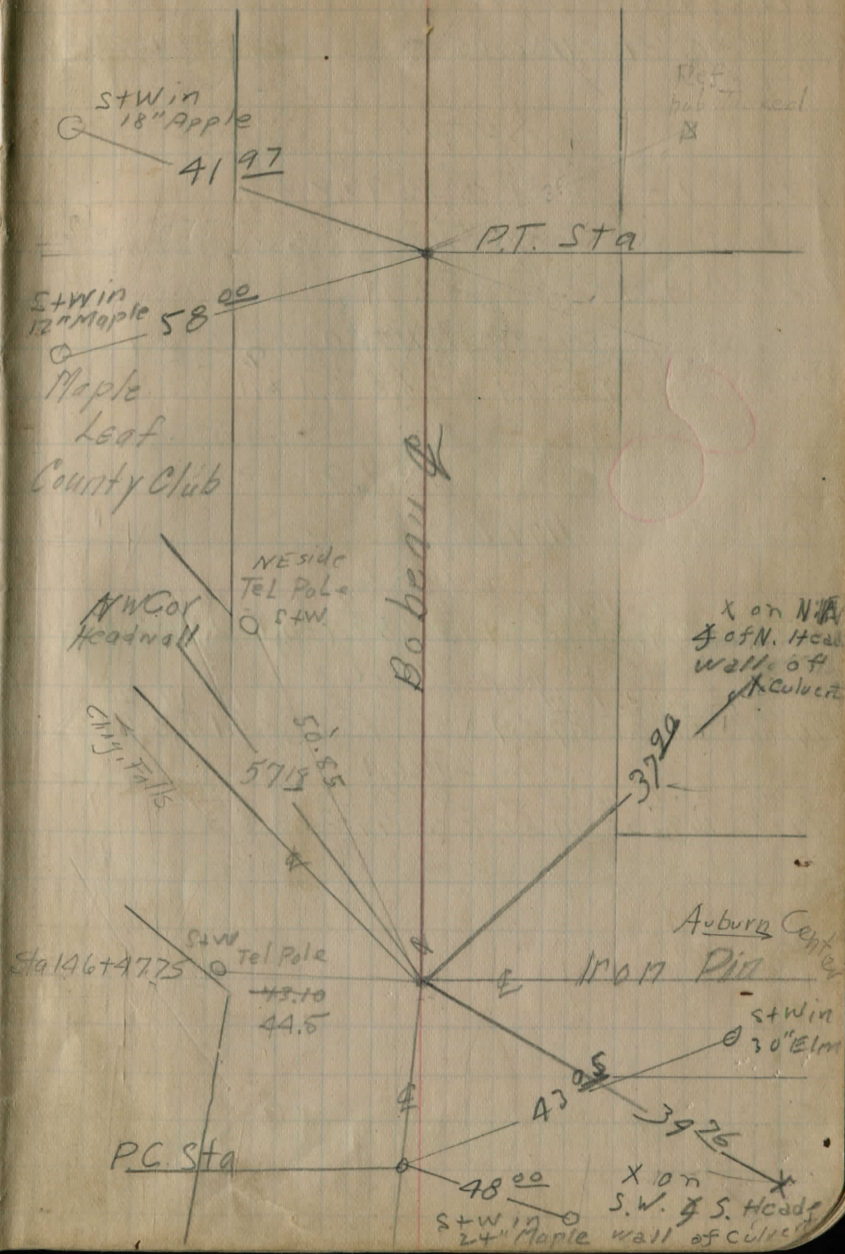 S+W in
18" Apple
41 97
Ref.
P.T. Sta
S+W in
12" Maple
58 00
Maple
Leaf
County Club
Bobeau ℄
NE side
Tel Pole
S+W
NW Cor
Headwall
50.85
57 18
Chag. Falls
X on N.
of N. Head
wall of
Culvert
37 90
Auburn Center
Sta 146+47.75
S+W
Tel Pole
43.10
44.5
℄
Iron Pin
S+W in
30" Elm
43 05
39 26
P.C. Sta
48 00
S+W in
24" Maple
X on
S.W. S. Head
wall of Culvert